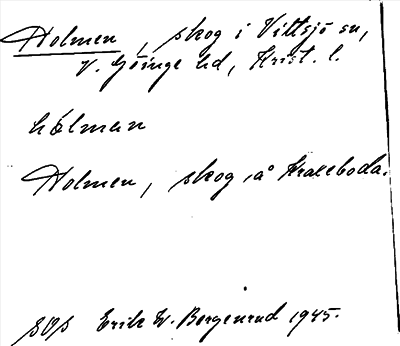 Holmen, skog i Vittsjö sn,
V. Göinge hd, Krist. l.
hålman
Holmen, skog, å Kraxeboda.
SOS Erik W. Bergenrud 1945.